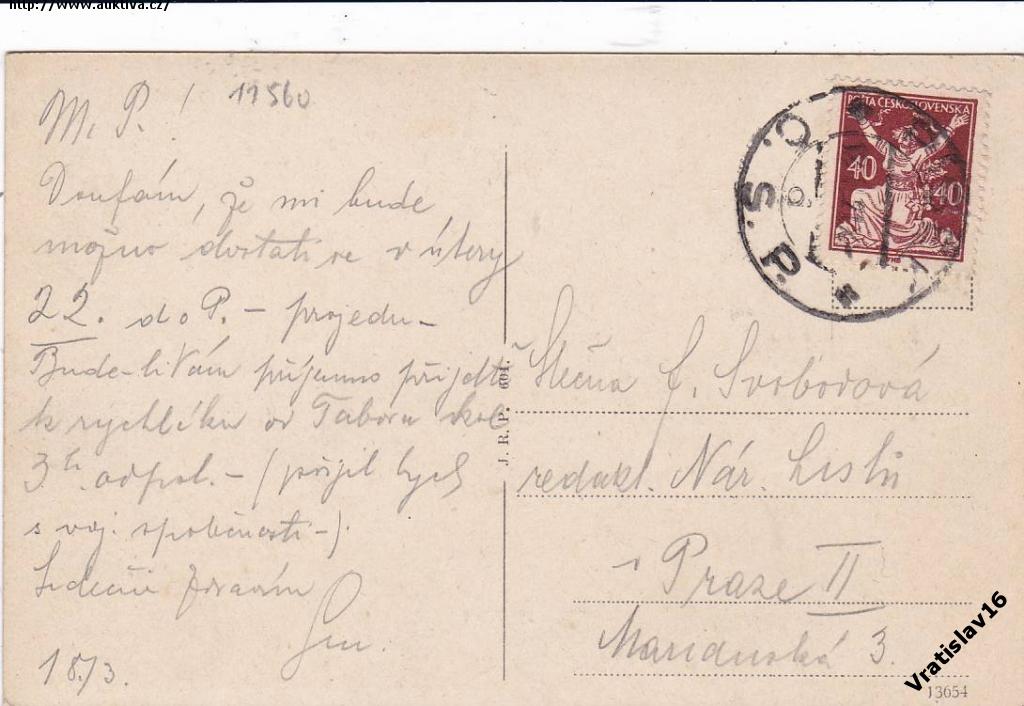 http://www.auktiva.cz/
M. P.! 11560
Doufám, že mi bude
možno dostati se v úterý
22. do P. – projedu –
Bude-li Vám příjemno přijďte
k rychlíku od Tábora kol
3 h. odpol. – (přijel bych
s voj. společností –).
Srdečně zdravím
18./3.
J. R. P. 601.
POŠTA ČESKOSLOVENSKA
40 40
P. S. O.
Slečna f. Svobodová
redakt. Nár. Listů
v Praze II
Marianská 3.
Vratislav16
13654